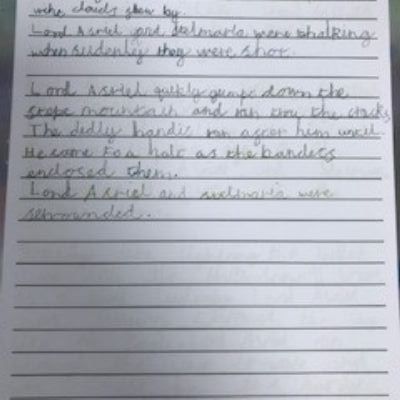 whe clouds flow by.
Lord Asriel and Stelmaria were thalking
when sudenley they were shot.
Lord Asriel quikly gumps down the
stepe mountain and ran throw the clouds
The dedly bandis ran after him untill
He came to a halt as the bandets
enclosed them.
Lord Asriel and stelmaria were
serrounded.